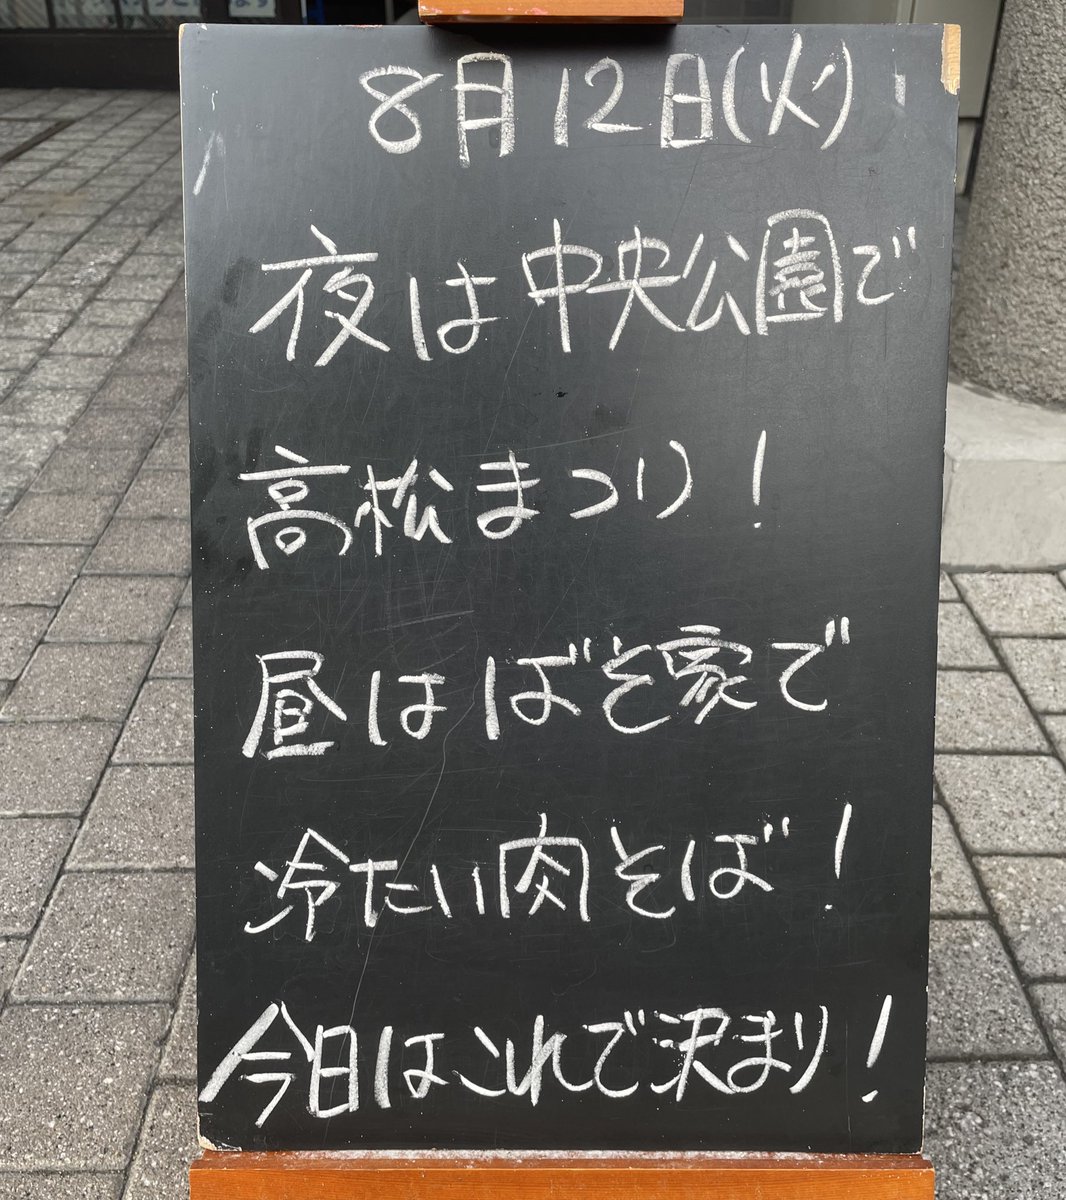 8月12日(火)
夜は中央公園で
高松まつり!
昼はばそ家で
冷たい肉そば!
今日はこれで決まり!